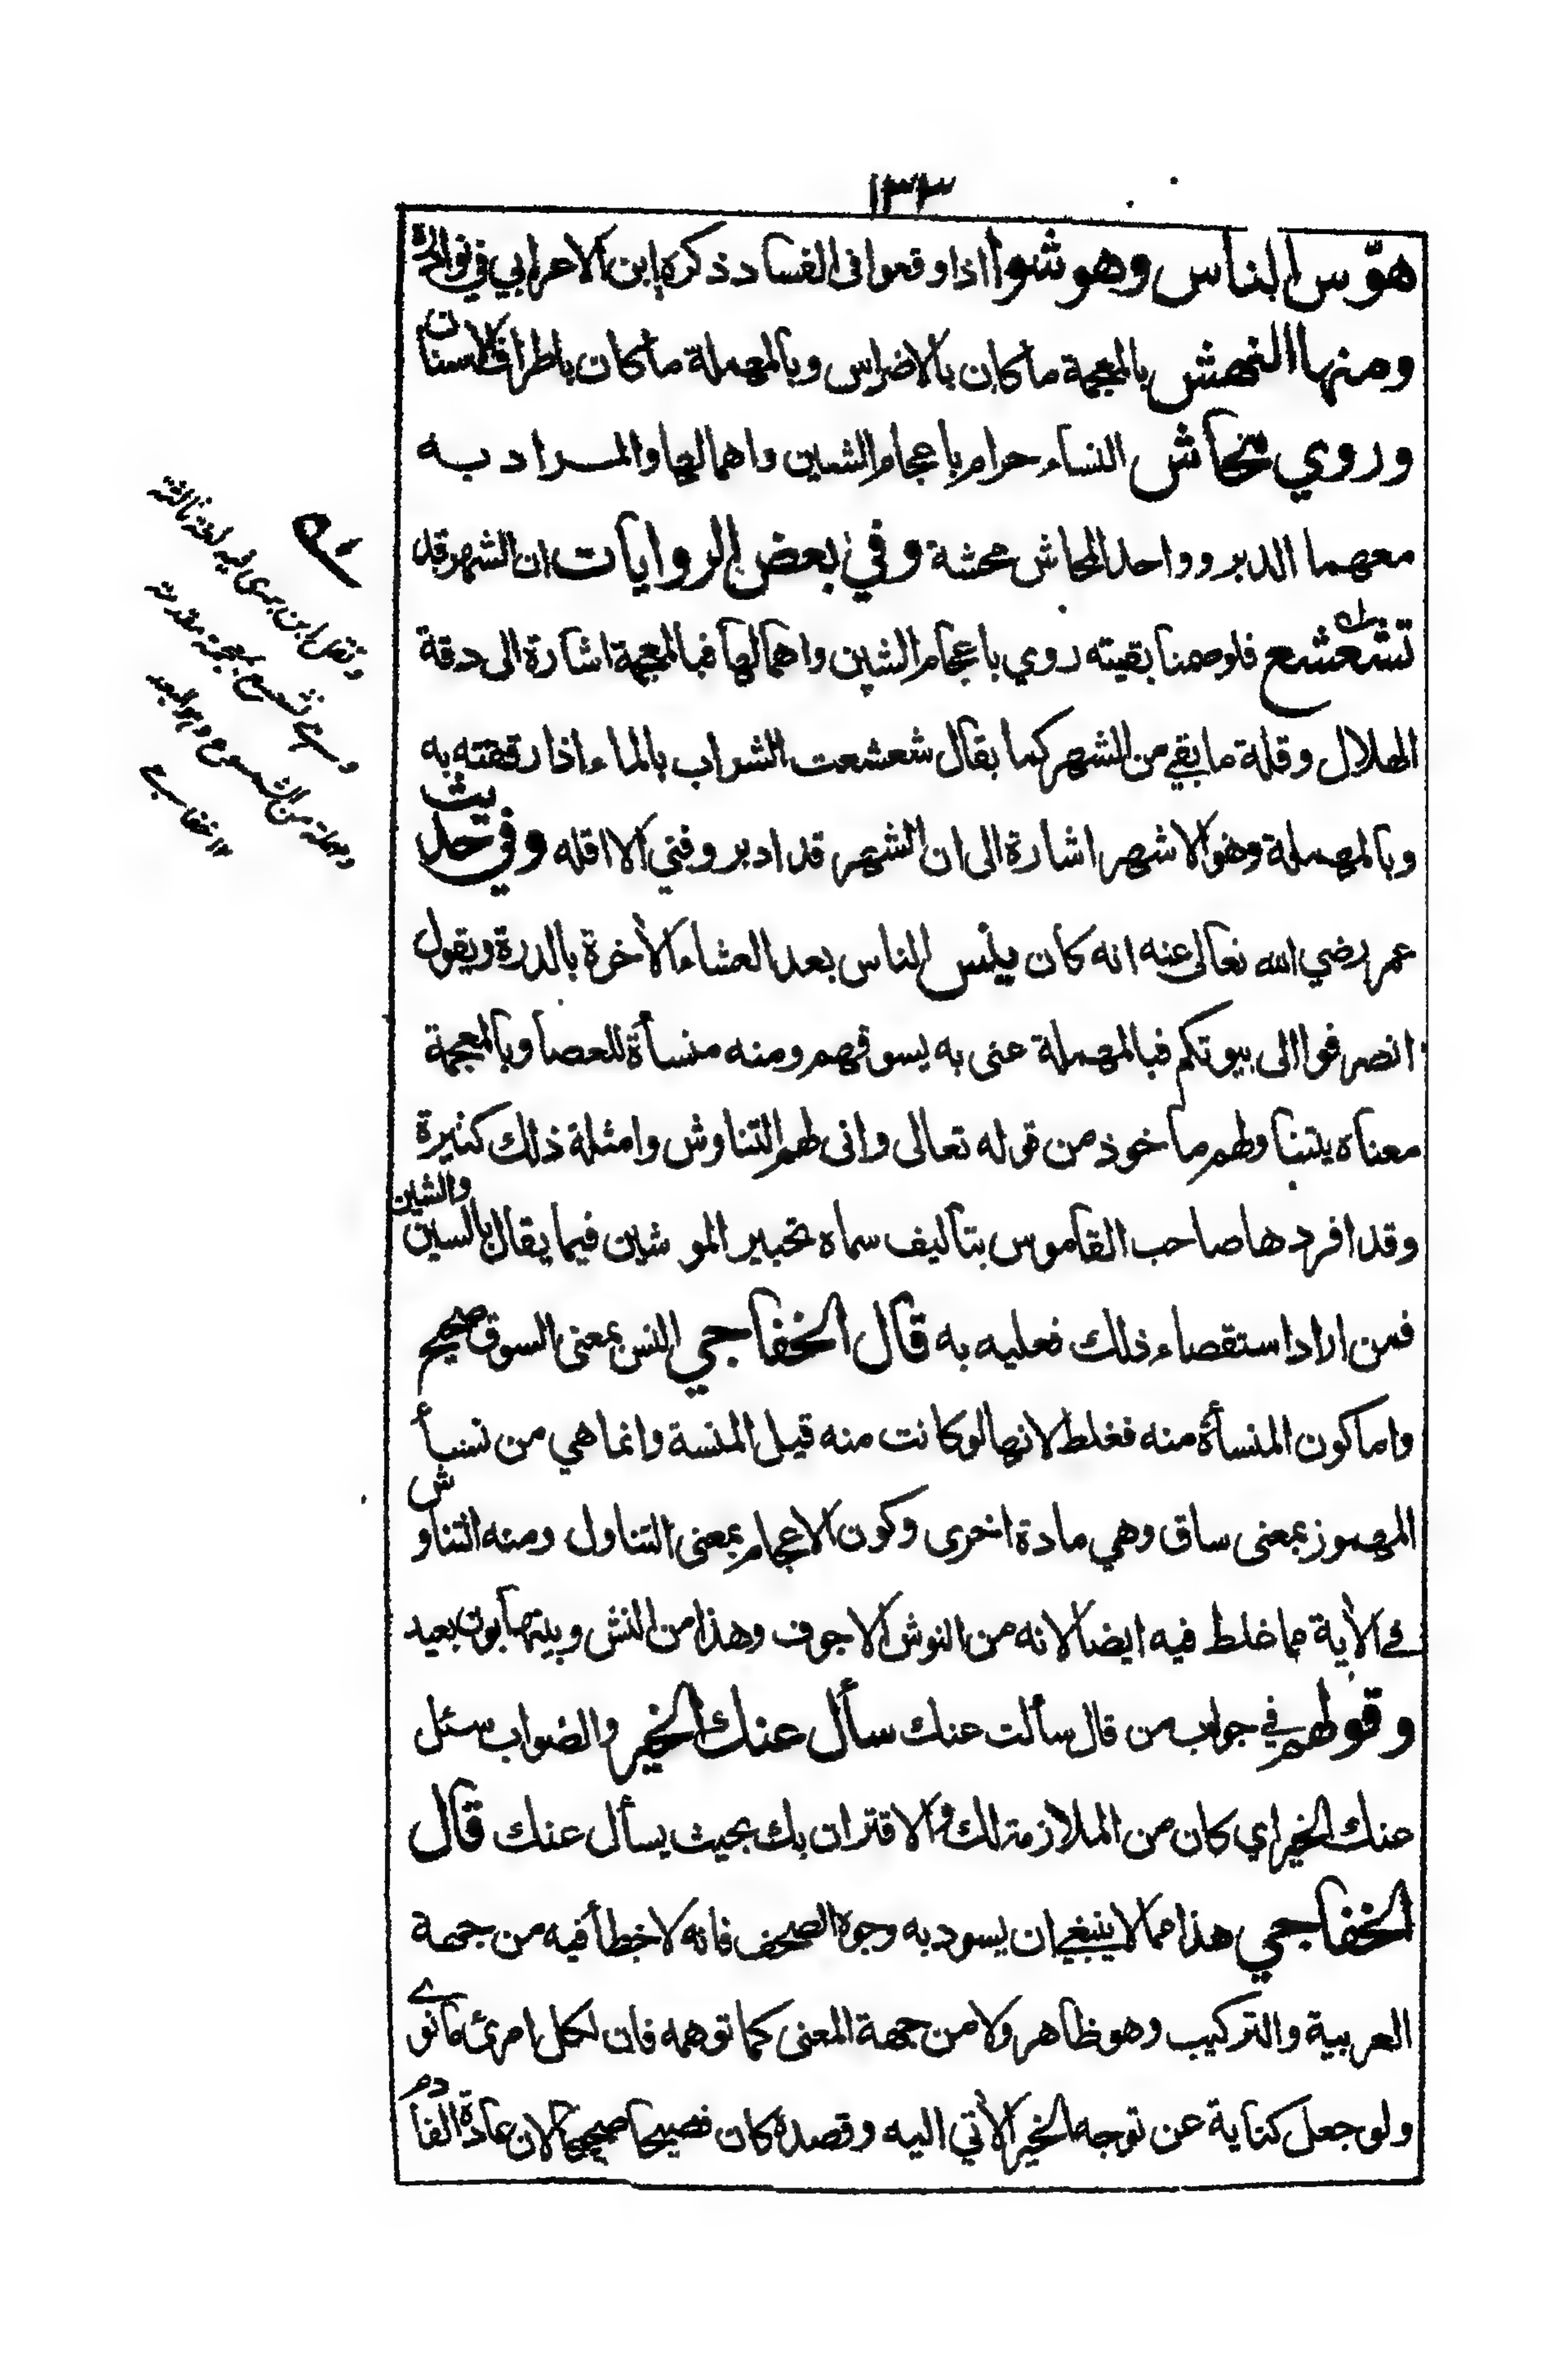 ١٣٣
هوّس الناس وهوشوا اذا وقعوا فى الفساد ذكره ابن الاعرابي في نوادره
ومنها النهش بالمعجمة ما كان بالاضراس وبالمهملة ما كان باطراف الاسنان
وروي محاش النساء حرام باعجام الشين واهمالها والمراد به
معهما الدبر وواحد المحاش محشة وفي بعض الروايات ان الشهر قد
تشعشع فلو صمنا بقيته روي باعجام الشين واهمالها فبالمعجمة اشارة الى دقة
الهلال وقلة ما بقي من الشهر كما يقال شعشعت الشراب بالماء اذا رققته به
وبالمهملة وهو الاشهر اشارة الى ان الشهر قد ادبر وفني الا اقله وفي حديث
عمر رضي الله تعالى عنه انه كان ينس الناس بعد العشاء الأخرة بالدرة ويقول
انصرفوا الى بيوتكم فبالمهملة عنى به يسوقهم ومنه منسأة للعصا وبالمعجمة
معناه يتناولهم ماخوذ من قوله تعالى وانى لهم التناوش وامثلة ذلك كثيرة
وقد افردها صاحب القاموس بتاليف سماه تحبير الموشين فيما يقال بالسين والشين
فمن اراد استقصاء ذلك فعليه به قال الخفاجي النس بمعنى السوق صحيح
واما كون المنسأة منه فغلط لانها لو كانت منه قيل المنسة وانما هي من نسأ
المهموز بمعنى ساق وهي مادة اخرى وكون الاعجام بمعنى التناول ومنه التناوش
في الأية مما خلط فيه ايضا لانه من النوش الاجوف وهذا من النش وبينهما بون بعيد
وقولهم في جواب من قال سألت عنك سأل عنك الخير والصواب سئل
عنك الخير اي كان من الملازمة لك والاقتران بك بحيث يسأل عنك قال
الخفاجي هذا مما لا ينبغي ان يسود به وجوه الصحف فانه لا خطأ فيه من جهة
العربية والتركيب وهو ظاهر ولا من جهة المعنى كما توهمه فان لكل امرئ ما نوى
ولو جعل كناية عن توجه الخير الأتي اليه وقصده كان فصيحا صحيحا لان عادة القادم
ونقل ابن برى فيه لغة ثالثة